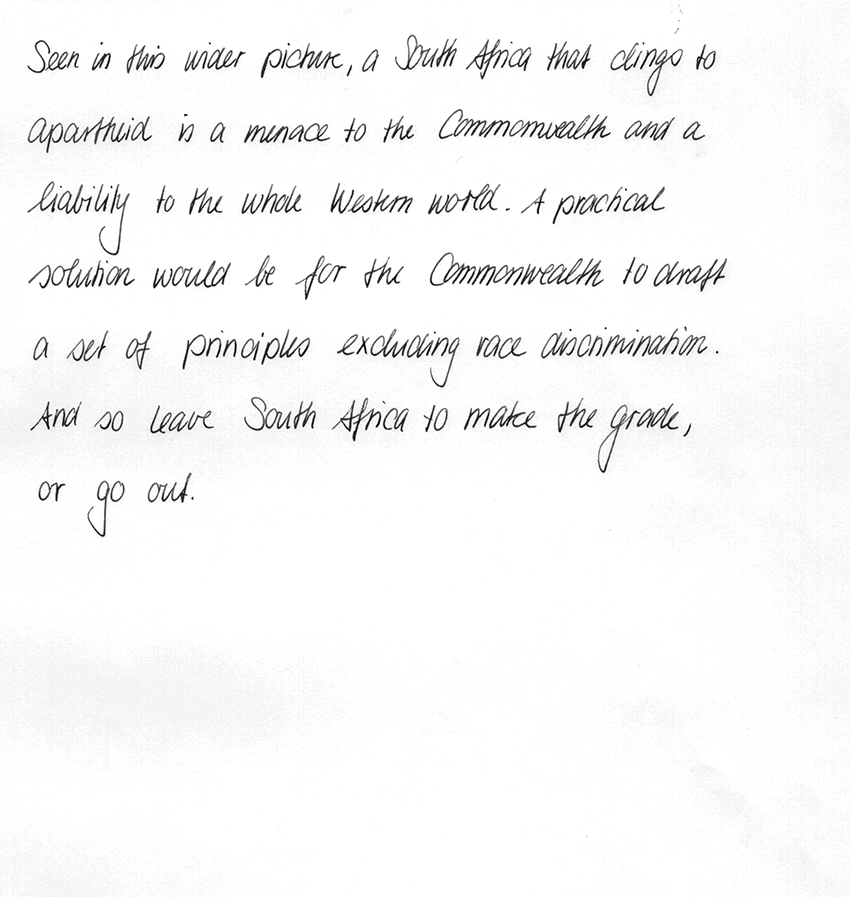 Seen in this wider picture, a South Africa that clings to
apartheid is a menace to the Commonwealth and a
liability to the whole Western world. A practical
solution would be for the Commonwealth to draft
a set of principles excluding race discrimination.
And so leave South Africa to make the grade,
or go out.